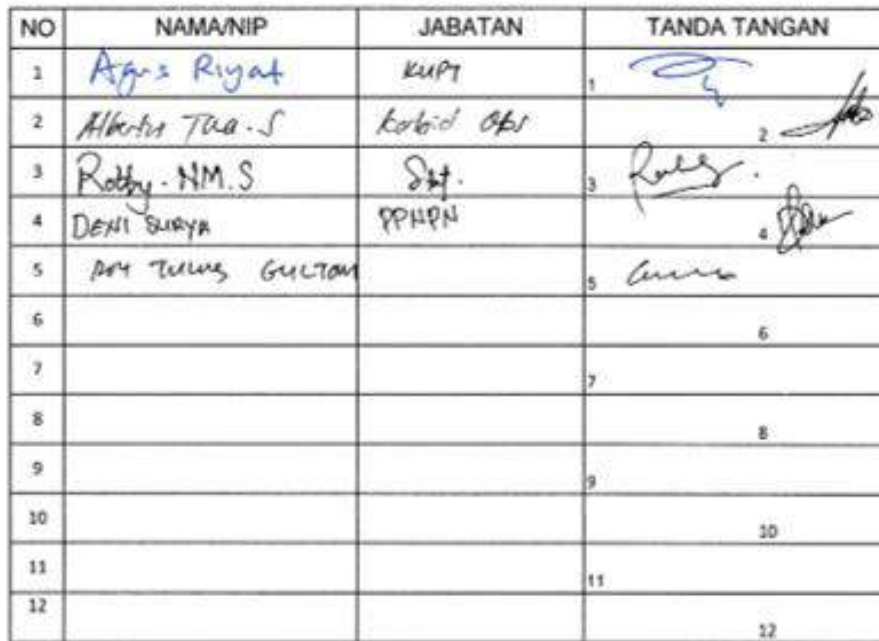 NO NAMA/NIP JABATAN TANDA TANGAN
1 Agus Riyat KUPT 1
2 Tua.S Korbid Ops 2
3 Robby. NM.S Staf. 3
4 DENI SURYA PPNPN 4
5 TULUS GULTOM 5
6 6
7 7
8 8
9 9
10 10
11 11
12 12